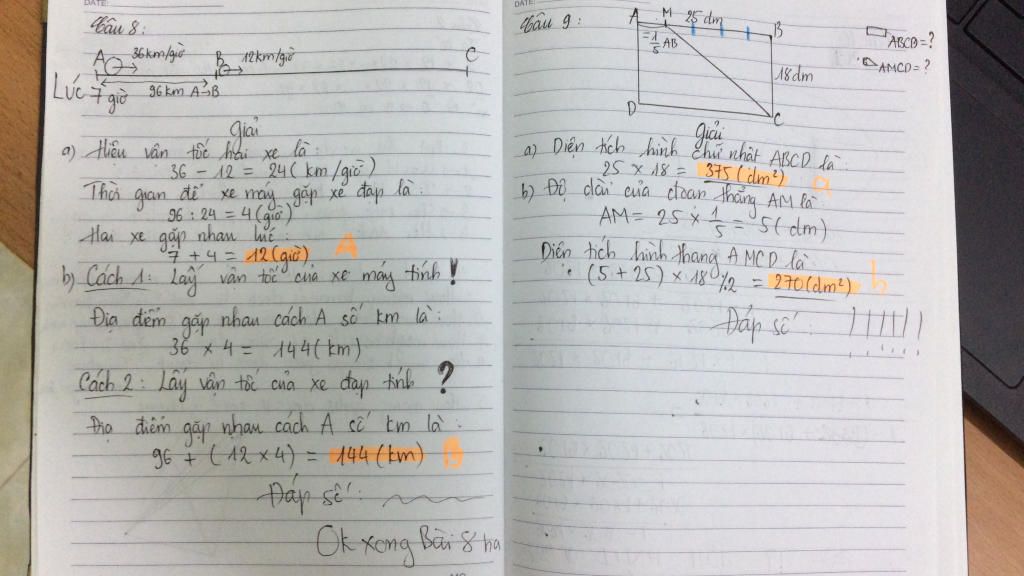 DATE:
Câu 8:
36km/giờ
12km/giờ
A
B
C
Lúc 7 giờ
96km A→B
giải
a) Hiệu vận tốc hai xe là:
36 - 12 = 24 (km/giờ)
Thời gian để xe máy gặp xe đạp là:
96 : 24 = 4 (giờ)
Hai xe gặp nhau lúc:
7 + 4 = 12 (giờ) A
b) Cách 1: Lấy vận tốc của xe máy tính !
Địa điểm gặp nhau cách A số km là:
36 × 4 = 144 (km)
Cách 2: Lấy vận tốc của xe đạp tính ?
Địa điểm gặp nhau cách A số km là:
96 + (12 × 4) = 144 (km) B
Đáp số:
Ok xong Bài 8 ha
DATE:
Câu 9:
A M 25 dm B
= 1/5 AB
18dm
D C
ABCB = ?
AMCD = ?
giải
a) Diện tích hình chữ nhật ABCD là:
25 × 18 = 375 (dm²) a
b) Độ dài của đoạn thẳng AM là:
AM = 25 × 1/5 = 5 (dm)
Diện tích hình thang AMCD là
(5 + 25) × 18 / 2 = 270 (dm²) b
Đáp số : !!!!!!